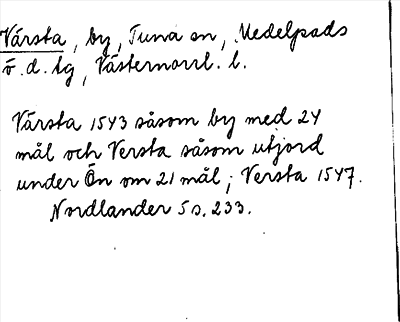 Värsta, by, Tuna sn, Medelpads
v. d. tg, Västernorrl. l.
Värsta 1543 såsom by med 24
mål och Versta såsom utjord
under Ön om 21 mål; Versta 1547.
Nordlander 5 s. 233.